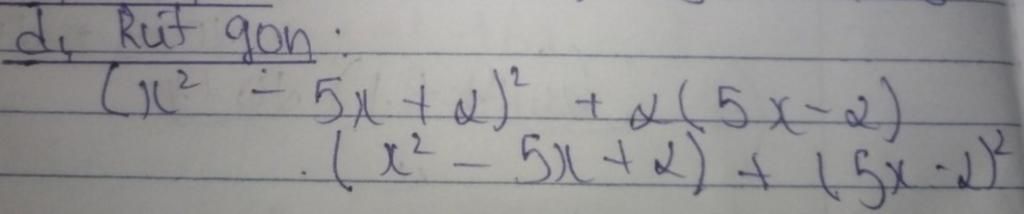 d, Rút gọn:
(x² - 5x + 2)² + 2(5x - 2)
.(x² - 5x + 2) + (5x - 2)²